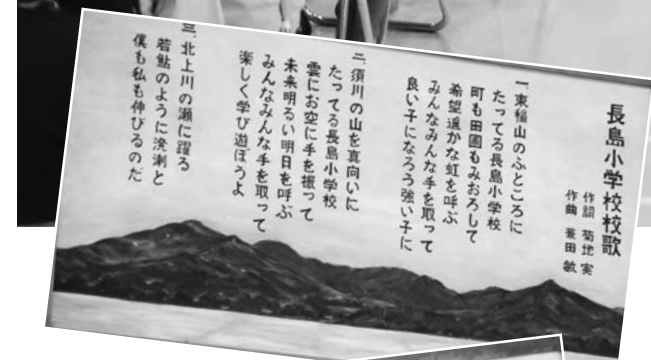 長島小学校校歌
作詞 菊地 実
作曲 兼田 敏
一、東稲山のふところに
たってる長島小学校
町も田圃もみおろして
希望遥かな虹を呼ぶ
みんなみんな手を取って
良い子になろう強い子に
二、須川の山を真向いに
たってる長島小学校
雲にお空に手を振って
未来明るい明日を呼ぶ
みんなみんな手を取って
楽しく学び遊ぼうよ
三、北上川の瀬に躍る
若鮎のように溌溂と
僕も私も伸びるのだ